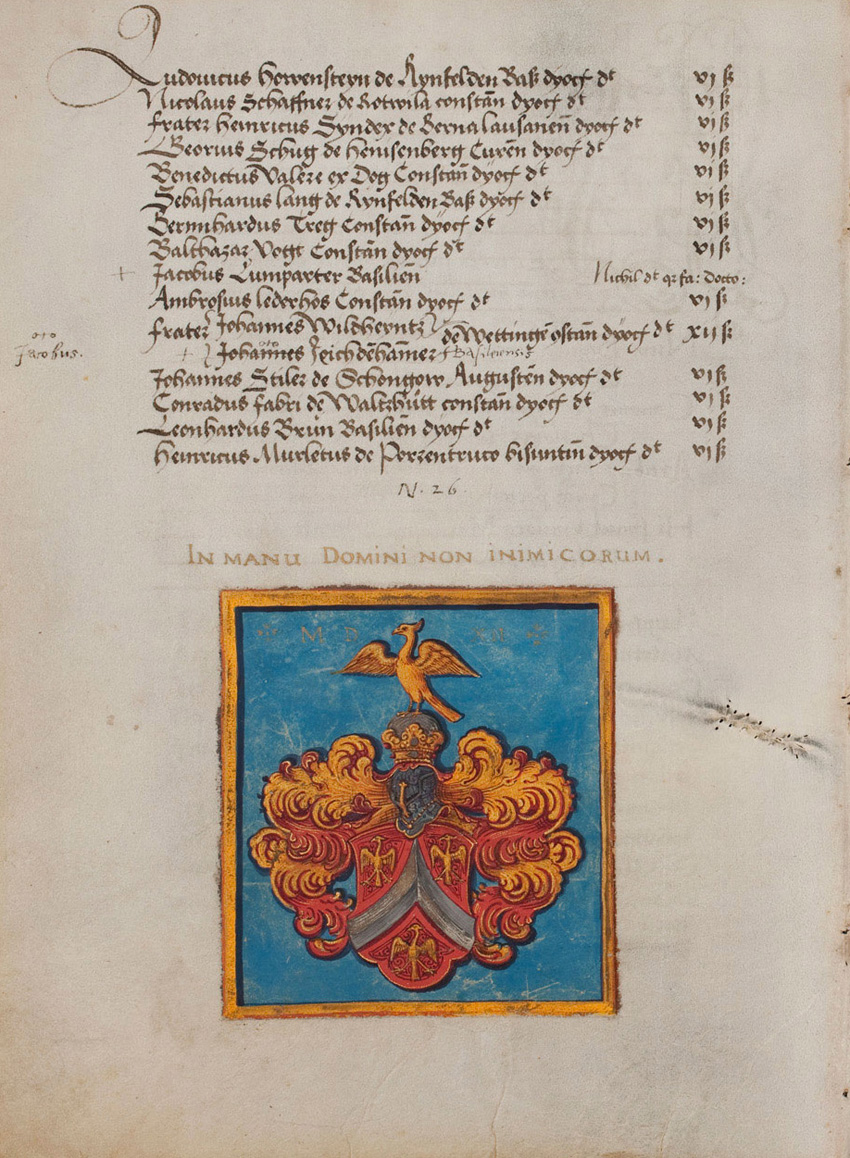 Ludouicus Howensteyn de Rynfelden Baß dyocß dt vj ß
Nicolaus Schaffner de Rotwila constañ dyocß dt vj ß
frater heinricus Synder de Berna lausaneñ dyocß dt vj ß
Georius Schug de Cureñ dyocß dt vj ß
Benedictus ex Dog Constañ dyocß dt vj ß
Sebastianus lang de Rynfelden Baß dyocß dt vj ß
Bernnhardus Treg Constañ dyocß dt vj ß
Balthazar Vogt Constañ dyocß dt vj ß
+ Jacobus Lumparter Basilieñ Nichil dt qz fa: Docto:
Ambrosius lederhos Constañ dyocß dt vj ß
frater Johannes Wildherntz de Wettingē ꝯstañ dyocß dt xij ß
Jacobus. + Johannes Basiliensis
Johannes Stiler de Schongow Augusteñ dyocß dt vj ß
Conradus fabri de Waltzhůtt constañ dyocß dt vj ß
Leonhardus Brůn Basilieñ dyocß dt vj ß
Heinricus Murletus de Porzentruto bisuntiñ dyocß dt vj ß
N. 26.
IN MANU DOMINI NON INIMICORUM.
M D XII